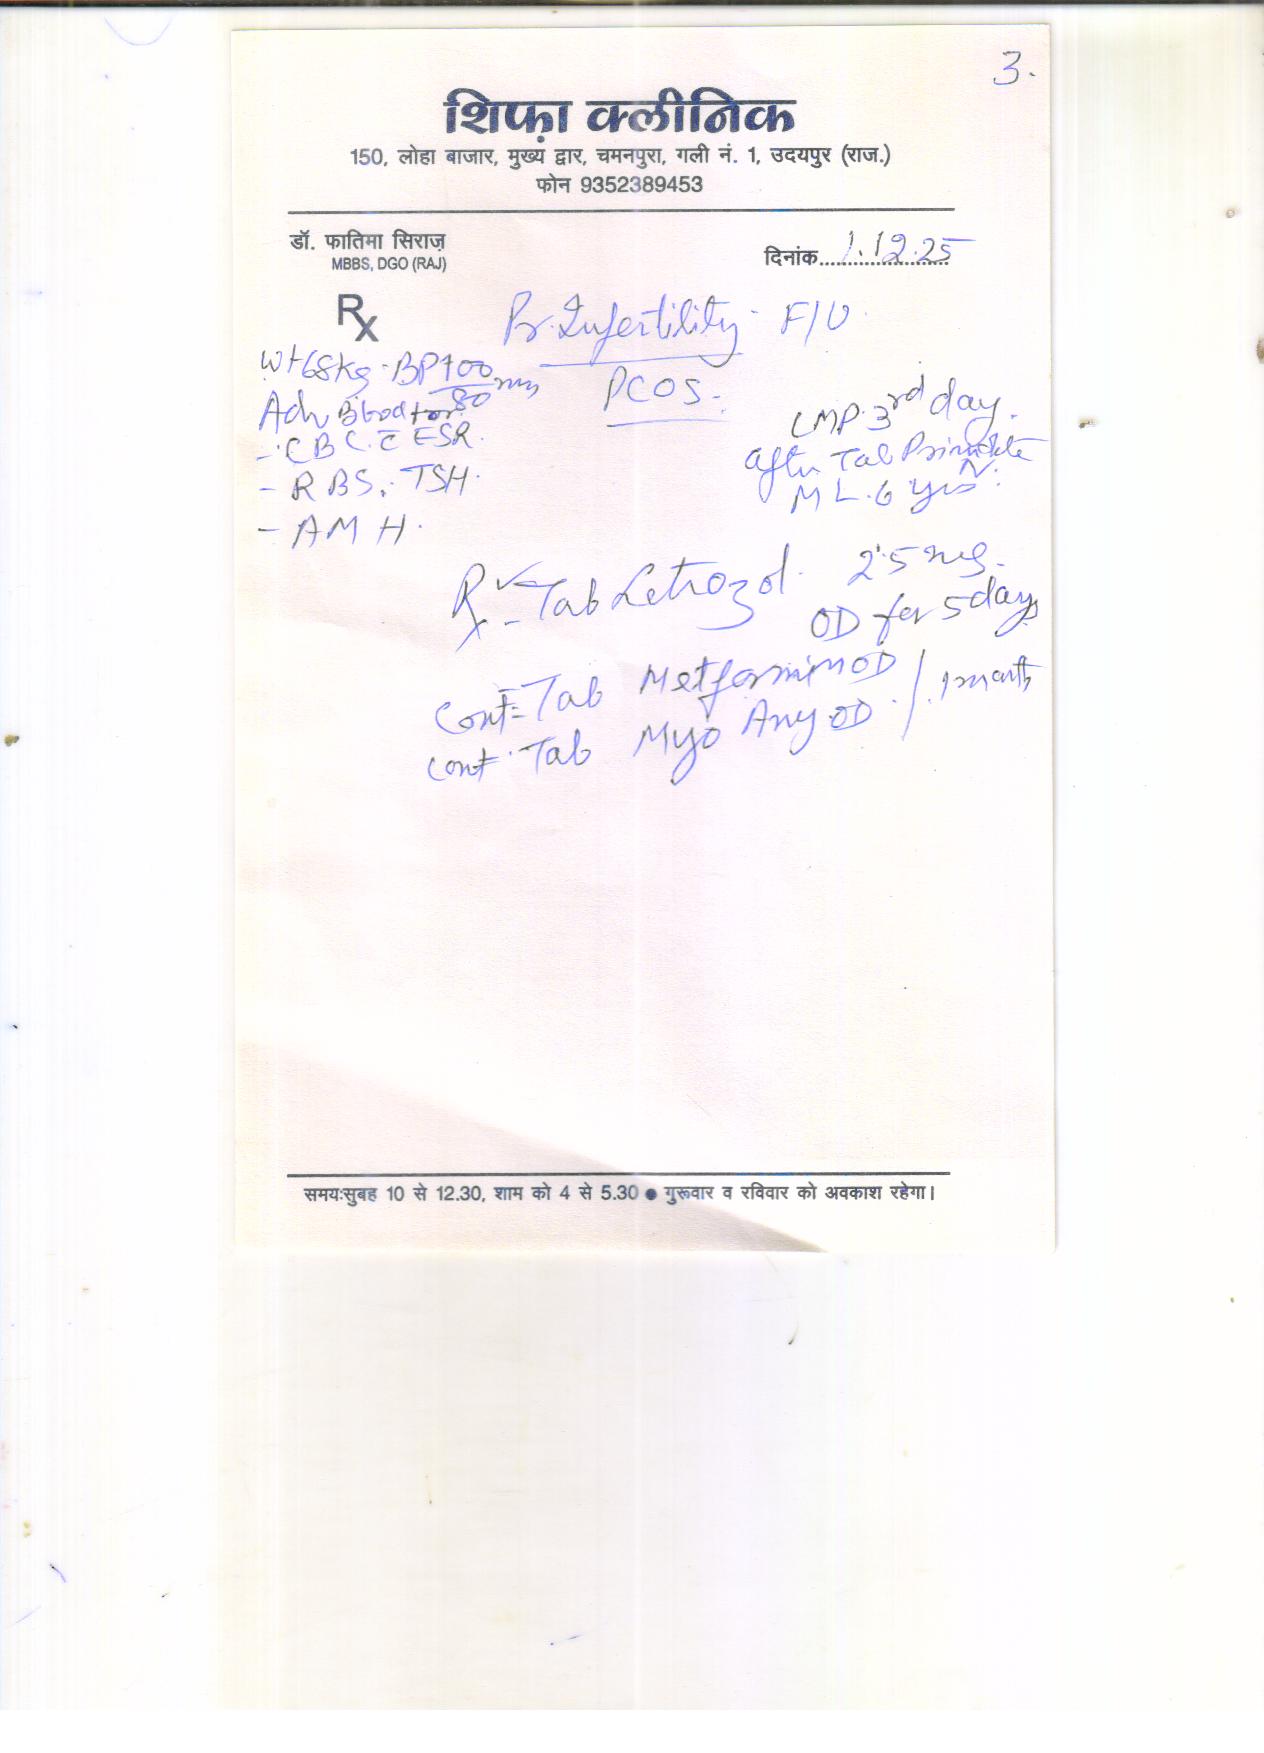 3.
शिफ़ा क्लीनिक
150, लोहा बाजार, मुख्य द्वार, चमनपुरा, गली नं. 1, उदयपुर (राज.)
फोन 9352389453
डॉ. फातिमा सिराज़
MBBS, DGO (RAJ)
दिनांक 1.12.25
Rx
Pr. Infertility - F/U
PCOS.
Wt 68kg. BP 100/80 mm
Adv Blood for
- CBC c̄ ESR.
- RBS, TSH.
- AMH.
LMP. 3rd day.
after Tab
ML. 6 yrs.
Rx - Tab Letrozol. 2.5 mg.
OD for 5 days
Cont = Tab Metformin OD / 1 month
Cont. Tab Myo Any OD
समय:सुबह 10 से 12.30, शाम को 4 से 5.30 ● गुरूवार व रविवार को अवकाश रहेगा।